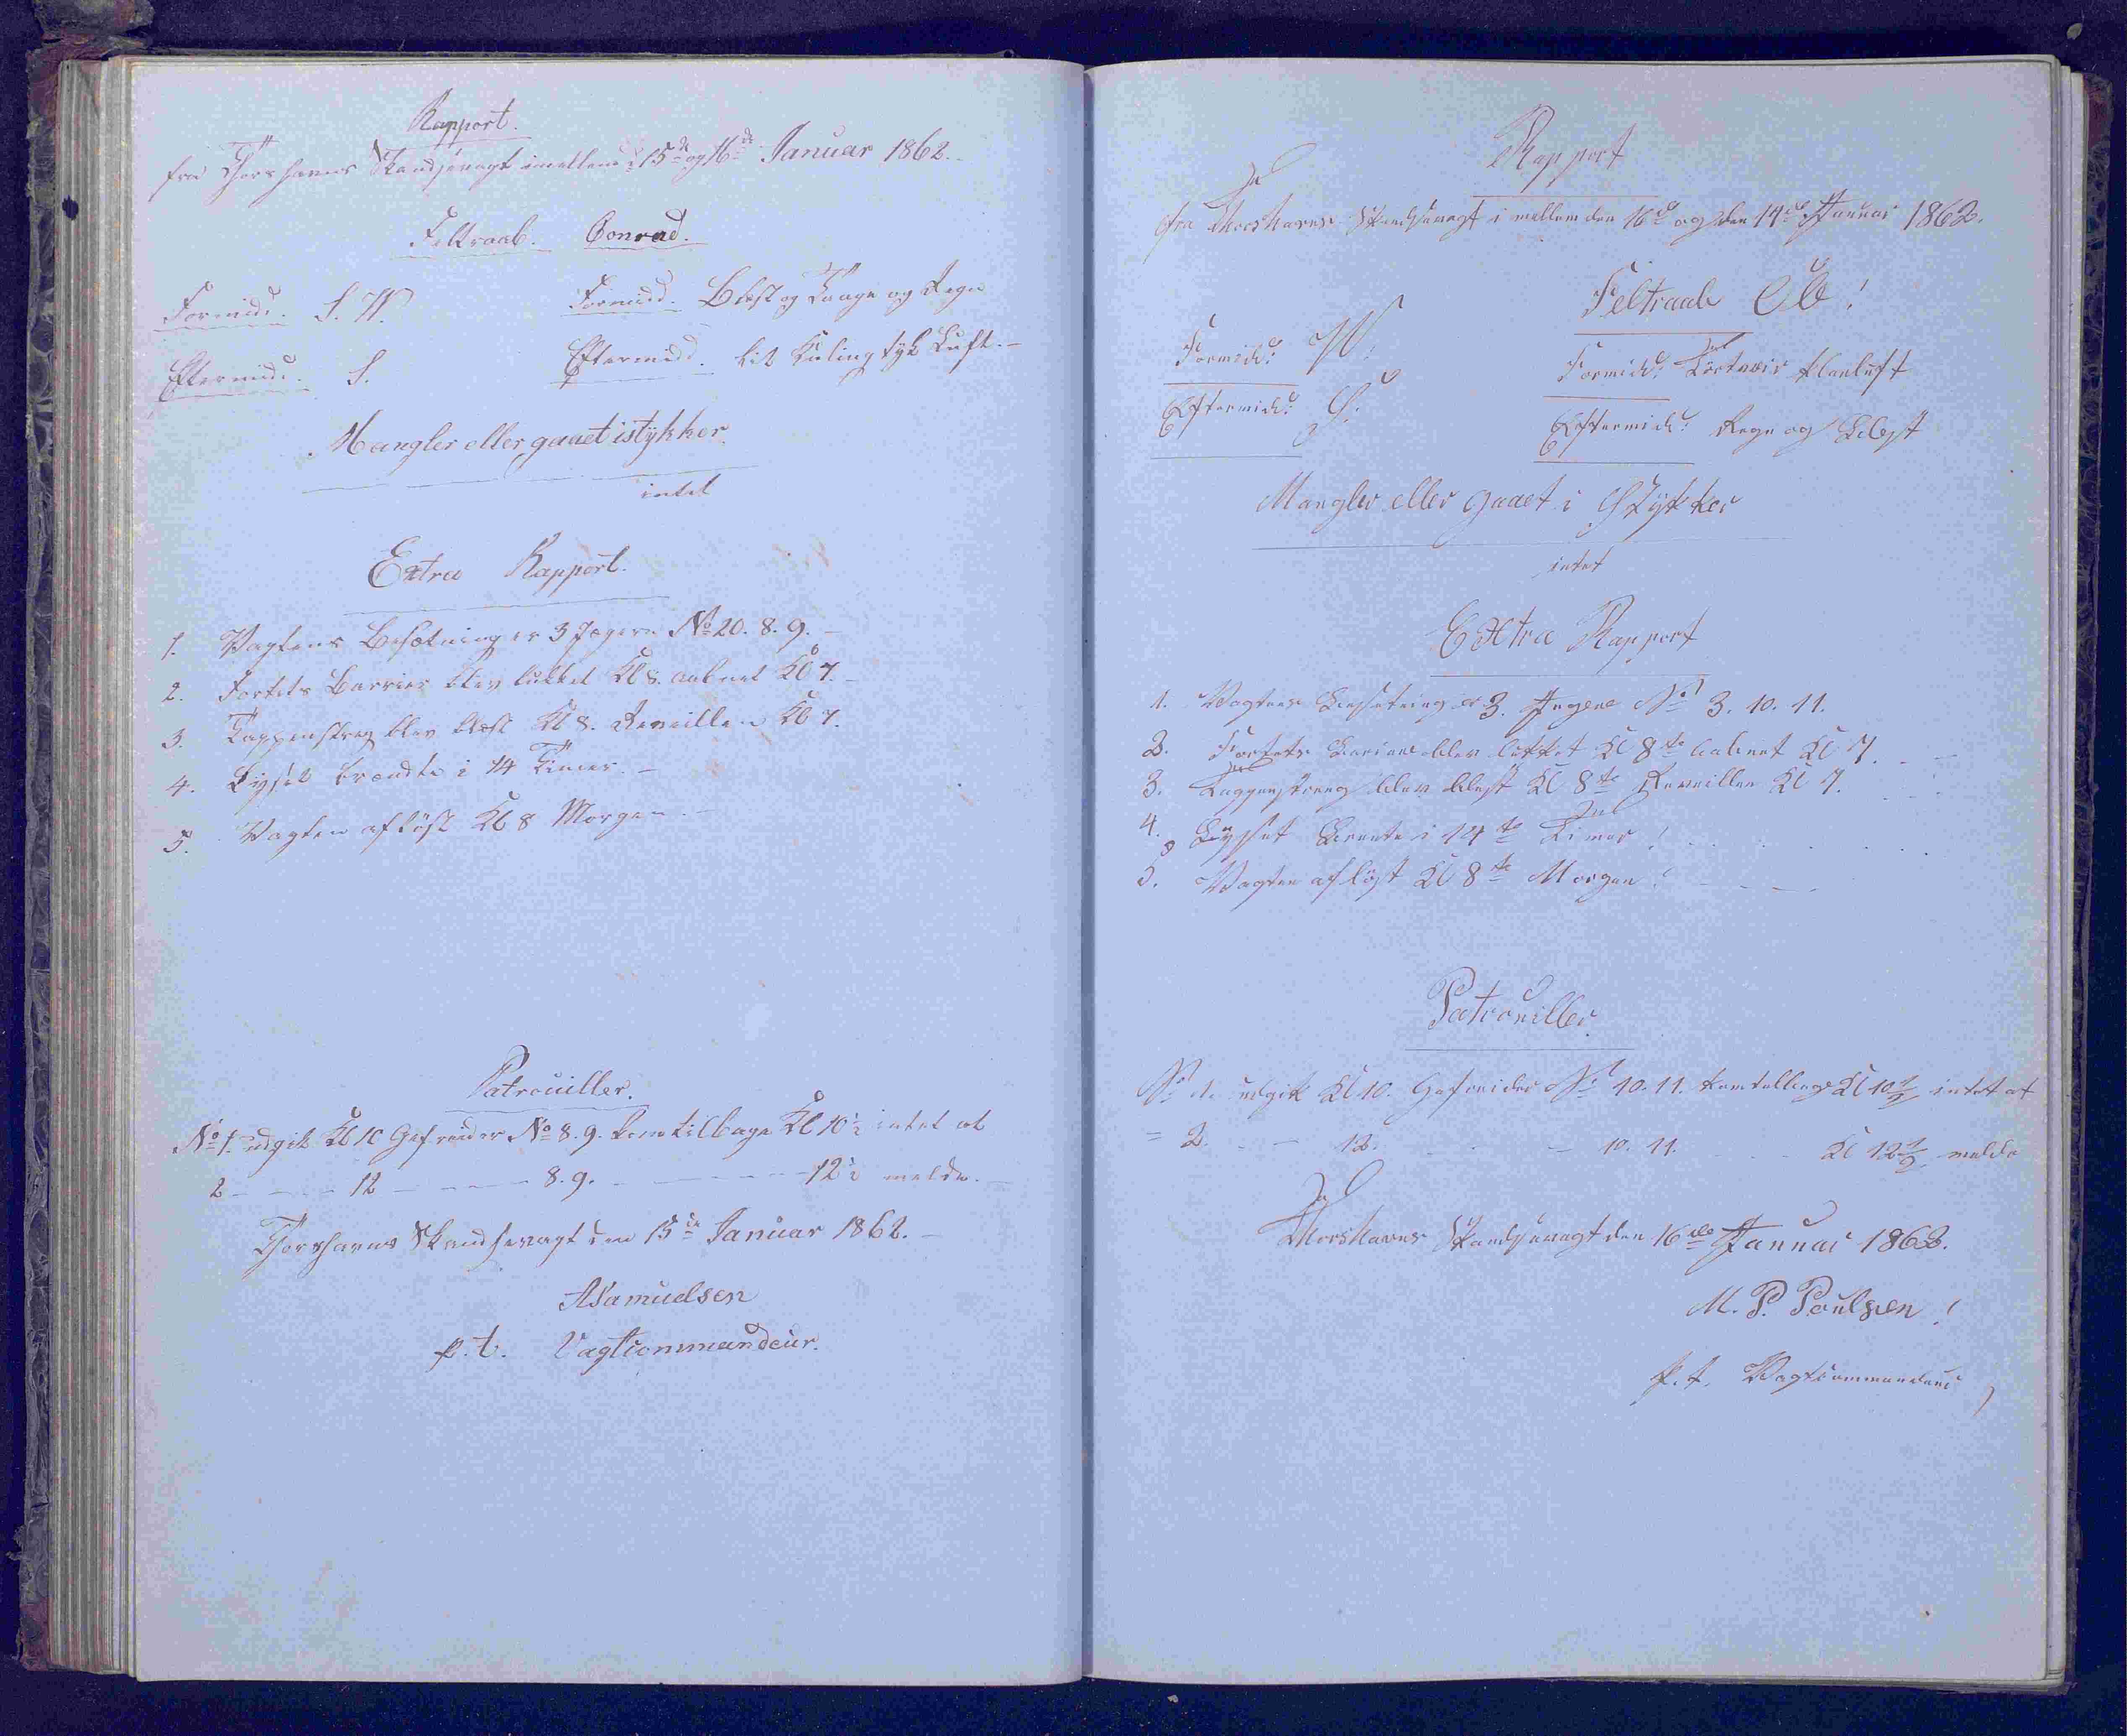 Rapport.
fra Thorshavns Skandsevagt imellem d 15de og 16de Januar 1862.
Feltraab. Conrad.
Formidd. S. W. Formidd. Blæst og Taage og Regn
Eftermidd. S. Eftermidd. lit Kuling tyk Luft. –
Mangler eller gaaet istykker
intet
Extra Rapport.
1. Vagtens Besætning er 3 Jægere No 20. 8. 9. –
2. Fortets Barrier blev lukket Kl 8. aabnet Kl 7. –
3. Tappenstreg blev blæst Kl 8. Reveillen Kl 7.
4. Lyset brændte i 14 Timer. –
5. Vagten afløst Kl 8 Morgen. –
Patrouiller.
No 1. udgik Kl 10 Gefreider No 8. 9. kom tilbage Kl 10½ intet at
2 – – – 12 – – – 8. 9. – – – 12½ melde. –
Thorshavns Skandsevagt den 15de Januar 1862. –
ASamuelsen
p. t. Vagtcommandeur.
Rapport
fra Thorshavns Skandsevagt i mellem den 16de og den 17de Januar 1862.
Feltraab Ole!
Formidd: W. Formidd: klarluft
Eftermidd: S. Eftermidd: Regn og Blest
Mangler eller gaaet i Stykker
intet
Extra Rapport
1. Vagtens Besetning er 3. Jegere No 3. 10. 11.
2. Fortets Bariere blev lukket Kl 8te aabnet Kl 7.
3. Tappenstreng blev blest Kl 8te Reveillen Kl 7.
4. Lyset Brente i 14te Timer!
5. Vagten afløst Kl 8te Morgen!
Patrouiller.
No 1. udgik Kl 10. Gefreider No 10. 11. kom tilbage Kl 10½ intet at
= 2. – – 12. – – 10. 11. – – Kl 12½ melde
Thorshavns Skandsevagt den 16de Januar 1862.
M. P. Poulsen!
p. t. Vagtcommandeur